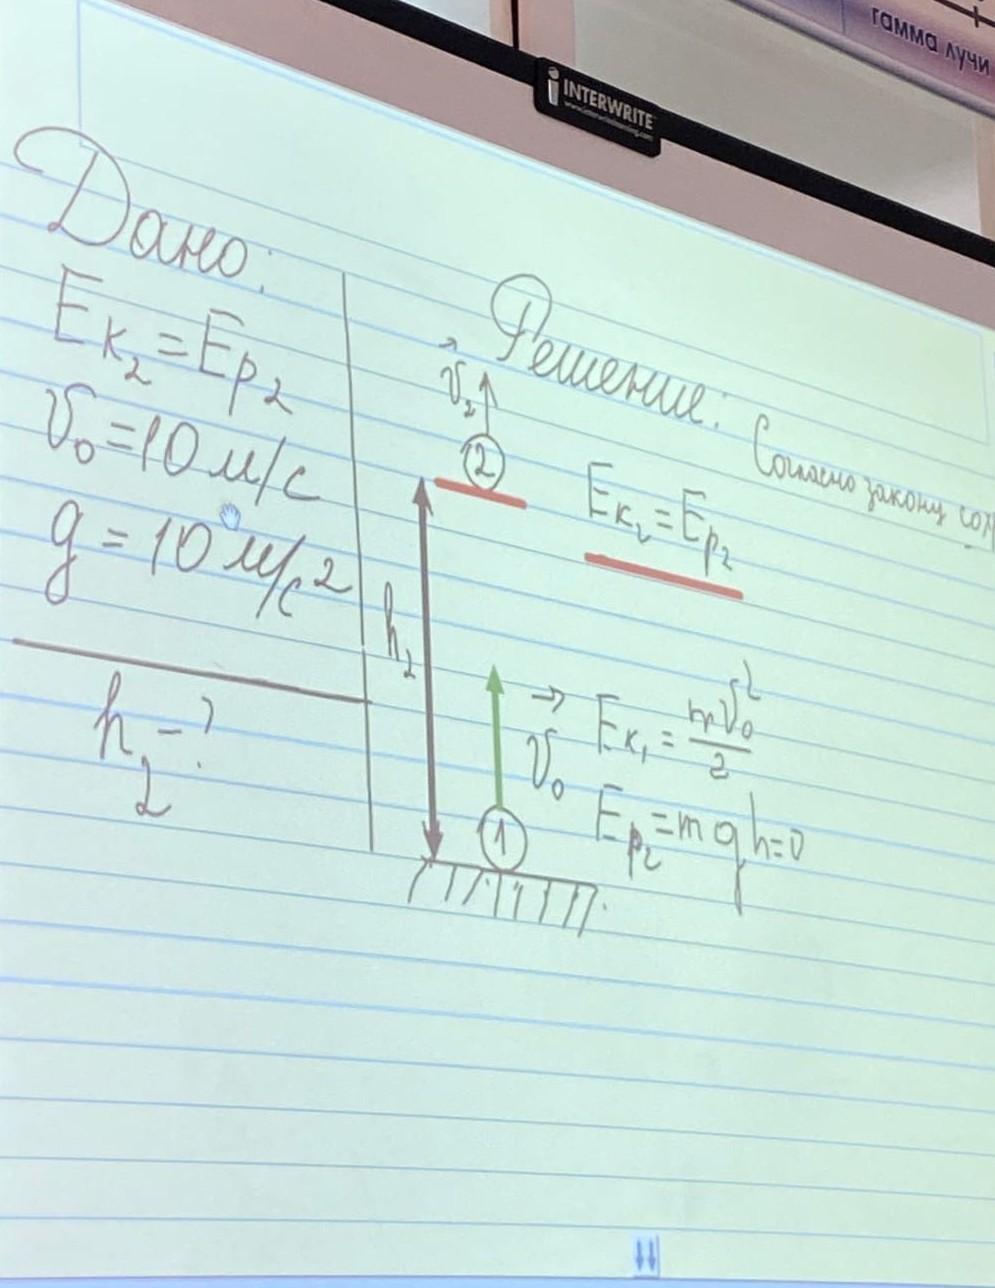 гамма лучи
INTERWRITE
Дано:
Eк₂ = Ep₂
V₀ = 10 м/с
g = 10 м/с²
h₂ - ?
Решение: Согласно закону сох
V₂
2
Eк₂ = Ep₂
h₂
V₀
Eк₁ = mV₀²/2
Ep₂ = mgh = 0
1